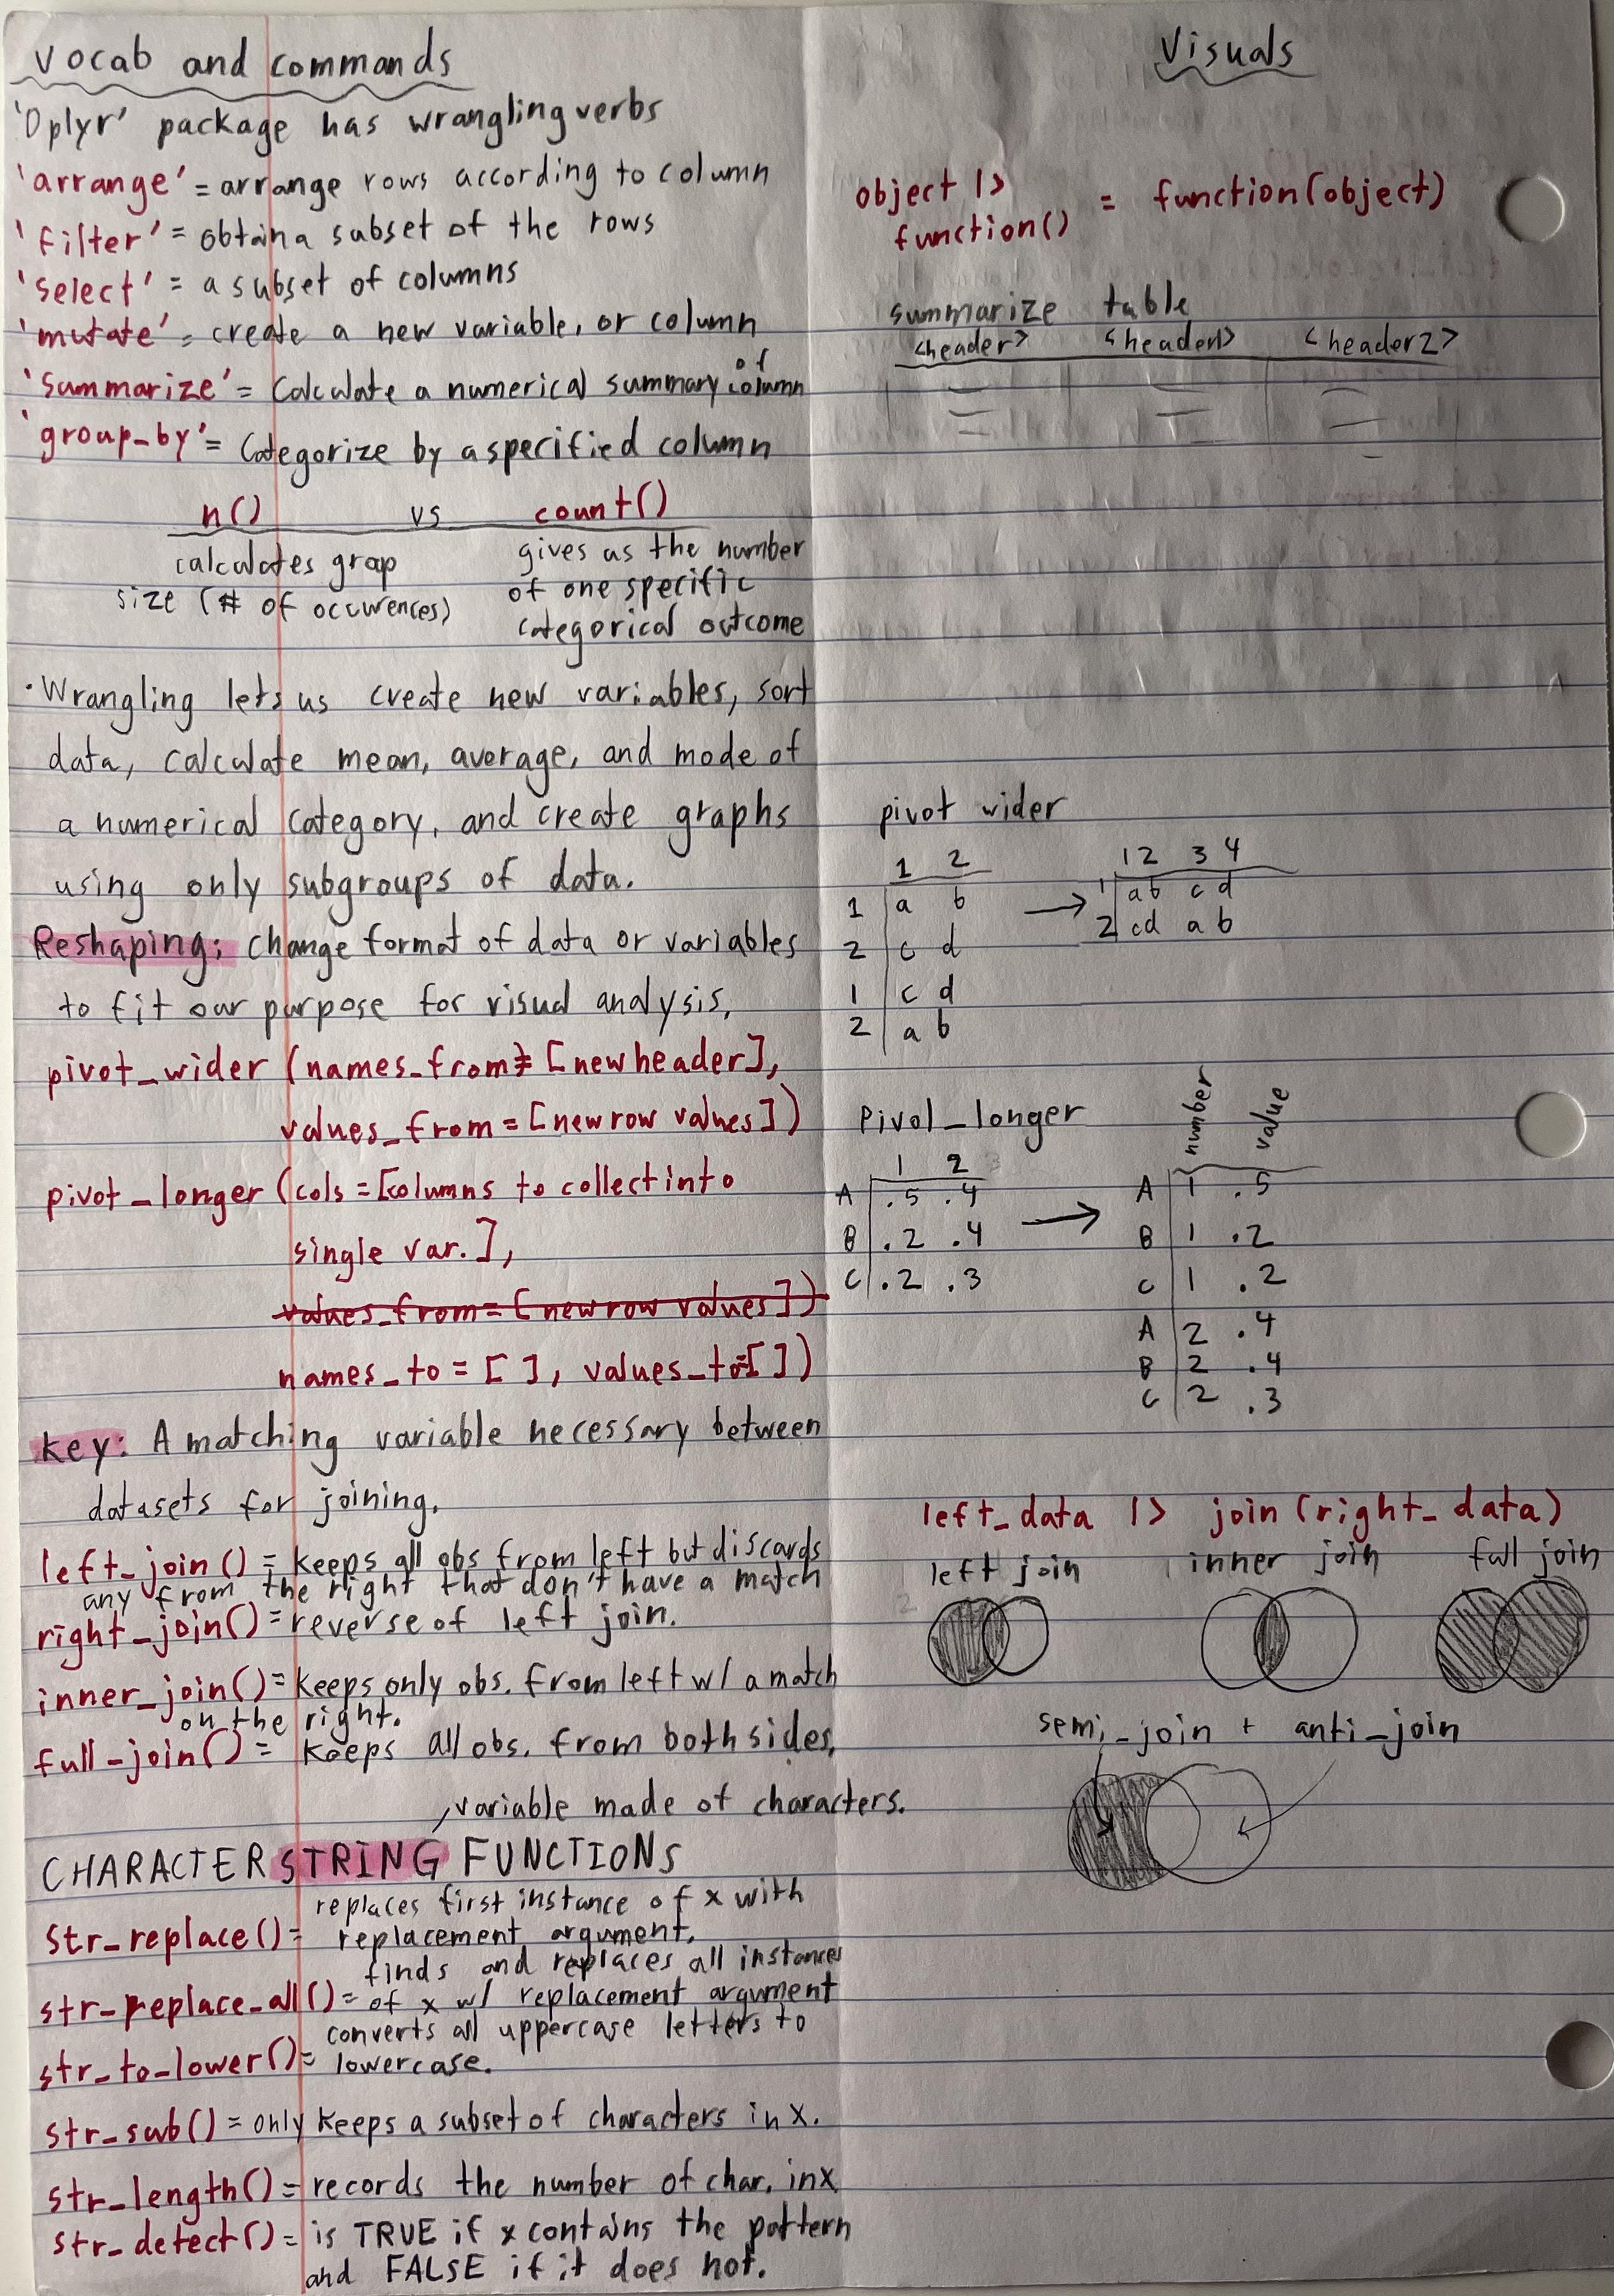 vocab and commands
'Dplyr' package has wrangling verbs
'arrange' = arrange rows according to column
'filter' = obtain a subset of the rows
'select' = a subset of columns
'mutate' = create a new variable, or column
'summarize' = Calculate a numerical summary of column
'group_by' = Categorize by a specified column
n() vs count()
calculates group
size (# of occurences)
gives us the number
of one specific
categorical outcome
· Wrangling lets us create new variables, sort
data, calculate mean, average, and mode of
a numerical category, and create graphs
using only subgroups of data.
Reshaping: Change format of data or variables
to fit our purpose for visual analysis,
pivot_wider (names_from = [new header],
values_from = [new row values])
pivot_longer (cols = [columns to collect into
single var.],
values_from = [new row values])
names_to = [ ], values_to = [ ])
key: A matching variable necessary between
datasets for joining.
left_join() = keeps all obs from left but discards
any from the right that don't have a match
right_join() = reverse of left join.
inner_join() = keeps only obs. from left w/ a match
on the right.
full_join() = keeps all obs. from both sides,
variable made of characters.
CHARACTER STRING FUNCTIONS
replaces first instance of x with
str_replace() = replacement argument.
finds and replaces all instances
str_replace_all() = of x w/ replacement argument
converts all uppercase letters to
str_to_lower() = lowercase.
str_sub() = only keeps a subset of characters in x.
str_length() = records the number of char. in x
str_detect() = is TRUE if x contains the pattern
and FALSE if it does not.
Visuals
object |>
function() = function(object)
summarize table
<header> <header1> <header2>
pivot wider
1 2
1 a b
2 c d
1 c d
2 a b
1 2 3 4
1 a b c d
2 c d a b
Pivot_longer
1 2
A .5 .4
B .2 .4
C .2 .3
number value
A 1 .5
B 1 .2
C 1 .2
A 2 .4
B 2 .4
C 2 .3
left_data |> join (right_data)
left join inner join full join
semi_join + anti_join